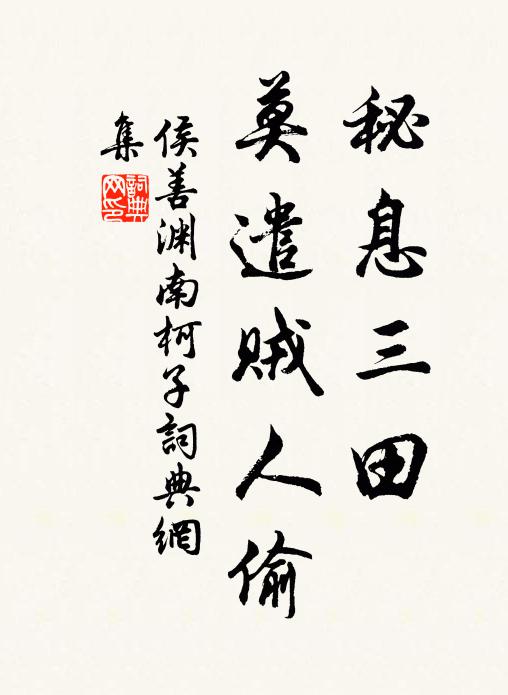 秘息三田
莫遣贼人偷
侯善渊南柯子詞典網
集
詞典
网印